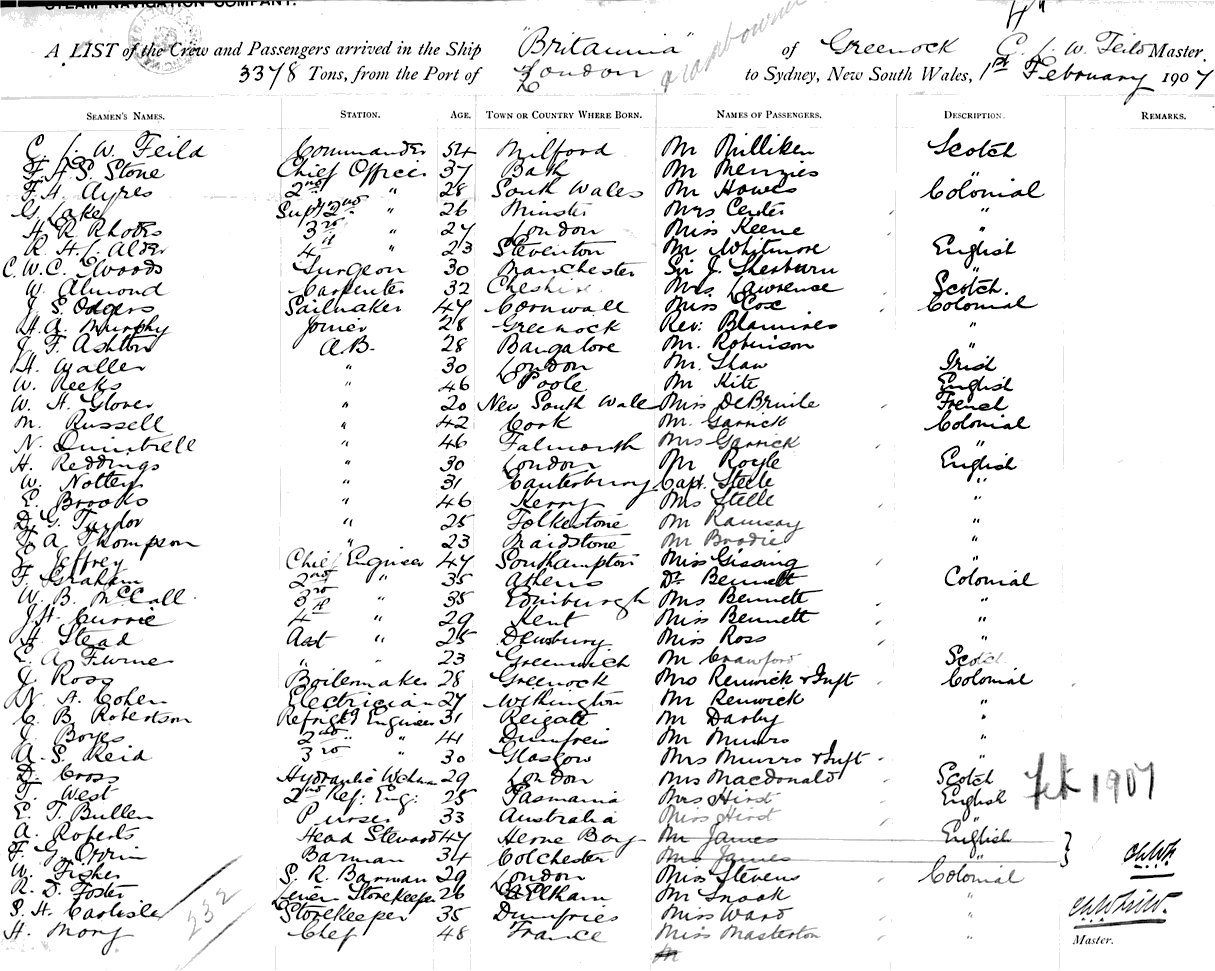 STEAM NAVIGATION COMPANY.
A LIST of the Crew and Passengers arrived in the Ship "Britannia" of Greenock C. J. W. Feild Master.
3378 Tons, from the Port of London to Sydney, New South Wales, 1st February 1907
SEAMEN'S NAMES. STATION. AGE. TOWN OR COUNTRY WHERE BORN. NAMES OF PASSENGERS. DESCRIPTION. REMARKS.
C. J. W. Feild Commander 54 Milford Mr Milliken Scotch
F. H. S. Stone Chief Officer 37 Bath Mr Menzies "
F. H. Ayres 2nd " 28 South Wales Mr Howes Colonial
G. Lake Supy 2nd " 26 Minster Mrs Center "
H. R. Rhodes 3rd " 27 London Miss Keene
R. H. J. Alder 4th " 23 Steventon Mr Whitmore English
C. W. C. Woods Surgeon 30 Manchester Sir J. Sherburn "
W. Almond Carpenter 32 Cheshire Mrs Lawrence Scotch.
J. S. Odgers Sailmaker 47 Cornwall Miss Cox Colonial
H. A. Murphy Joiner 28 Greenock Rev: Blamires "
J. F. Ashton A.B. 28 Bangalore Mr. Robinson "
H. Waller " 30 London Mr. Shaw Irish
W. Reeks " 46 Poole Mr Kite English
W. H. Glover " 20 New South Wales Miss DeBruile French
M. Russell " 42 Cork Mr. Garrick Colonial
N. Quintrell " 46 Falmouth Mrs Garrick "
H. Reddings " 30 London Mr Royle English
W. Notley " 31 Canterbury Capt. Stelle "
E. Brooks " 46 Kerry Mrs Stelle "
D. G. Taylor " 25 Folkestone Mr Ramsay "
F. A. Thompson " 23 Maidstone Mr Brodie "
Jeffrey Chief Engineer 47 Southampton Miss Gissing "
F. Graham 2nd " 35 Athens Dr Bennett Colonial
W. B. McCall 3rd " 35 Edinburgh Mrs Bennett "
J. H. Currie 4th " 29 Kent Miss Bennett "
H. Stead Asst " 25 Dewsbury Miss Ross "
E. A. Furnes " " 23 Greenwich Mr Crawford Scotch
J. Ross Boilermaker 28 Greenock Mrs Renwick & Inft Colonial
N. H. Cohen Electrician 27 Withington Mr Renwick "
C. B. Robertson Refrigtg Engineer 31 Reigate Mr Darby "
J. Boyes 2nd " 41 Dumfries Mr Munro "
A. S. Reid 3rd " 30 Glasgow Mrs Munro & Inft "
D. Cross Hydraulic 29 London Mrs MacDonald Scotch
T. West 2nd Ref: Eng: 25 Tasmania Mrs Hirst English
Feb 1907
E. T. Bullen Purser 33 Australia Miss Hirst "
A. Roberts Head Steward 47 Herne Bay Mr James English
F. G. Orrin Barman 34 Colchester Mrs James "
W. Fisher S. R. Barman 29 London Miss Stevens Colonial
R. D. Foster Linen Storekeeper 26 Eltham Mr Snook "
S. H. Carlisle Storekeeper 35 Dumfries Miss Ward "
H. Mory Chef 48 France Miss Masterton "
232
Master.